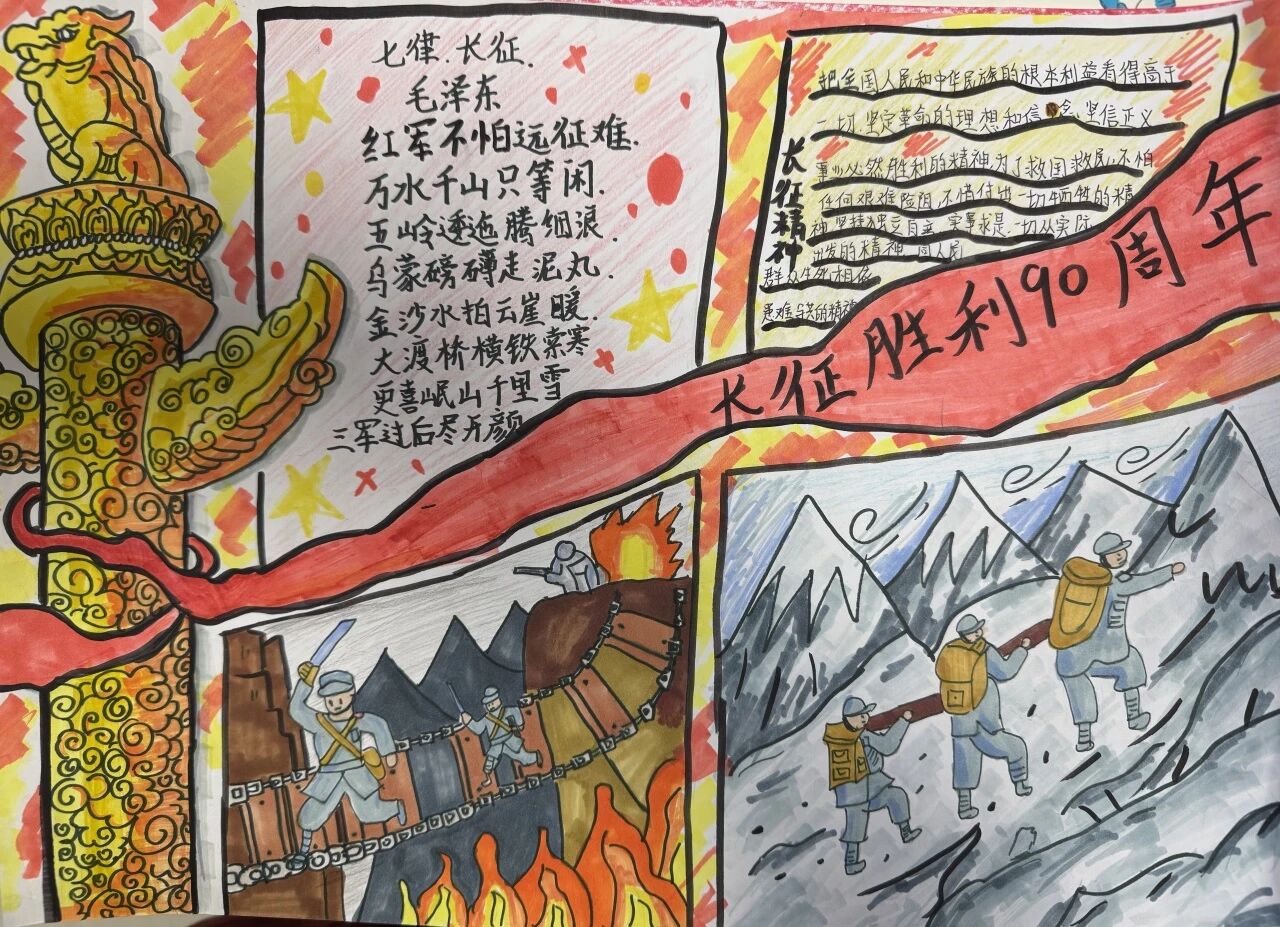 七律.长征.
毛泽东
红军不怕远征难.
万水千山只等闲.
五岭逶迤腾细浪.
乌蒙磅礴走泥丸.
金沙水拍云崖暖.
大渡桥横铁索寒
更喜岷山千里雪
三军过后尽开颜
长征精神
把全国人民和中华民族的根本利益看得高于
一切.坚定革命的理想和信念、坚信正义
事业必然胜利的精神.为了救国救民,不怕
任何艰难险阻,不惜付出一切牺牲的精
神坚持独立自主,实事求是,一切从实际
出发的精神
群众生死相依
患难与共的精神
长征胜利90周年